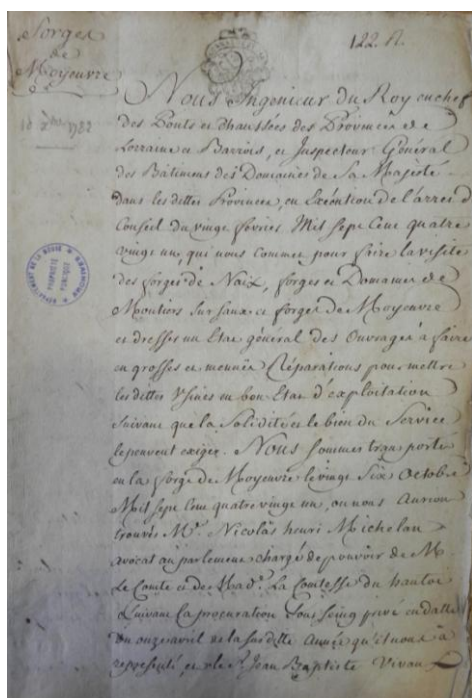 Forges
de
Moyeuvre
122. R.
1782
DÉPARTEMENT DE LA MEUSE
PROPRIÉTÉ
PUBLIQUE
ARCHIVES
Nous Ingenieur du Roy en chef
des Ponts et chaussées des Provinces de
Lorraine et Barrois, et Inspecteur Général
des Bâtimens des Domaines de Sa Majesté
dans les dittes Provinces, en Exécution de l'arrest d
Conseil du vingt fevrier Mil Sept Cent quatre
vingt un, qui nous commet pour faire la visite
des forges de Naix, forges et Domaines de
Montiers Sur Saux et forges de Moyeuvre
et dresser un Etat général des Ouvrages à faire
en grosses et menues Réparations pour mettre
les dittes Usines en bon Etat d'exploitation
suivant que la Solidité et le bien du Service
le peuvent exiger. Nous sommes transporté
en la forge de Moyeuvre le vingt Six Octobre
Mil Sept Cent quatre vingt un, ou nous Aurion
trouvés Mr. Nicolas henri Michelan
avocat au parlement chargé de pouvoir de M
Le Comte et de Mad. La Comtesse du hautoi
Suivant la procuration Sous Seing privé en datte
du onze avril de la susditte Année qu'il nous à
representé, et le Sr. Jean Baptiste Vivaux